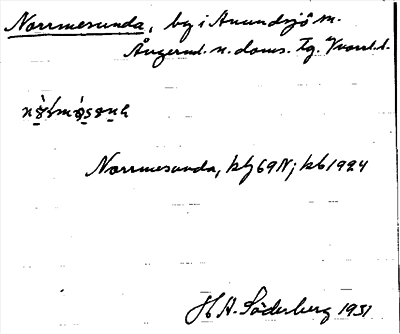 Norrmesunda, by i Anundsjö sn.
Ångerml. n. doms. tg. Västl. l.
Norrmesunda, kbj 69 N; kb 1924
H A. Söderberg 1931